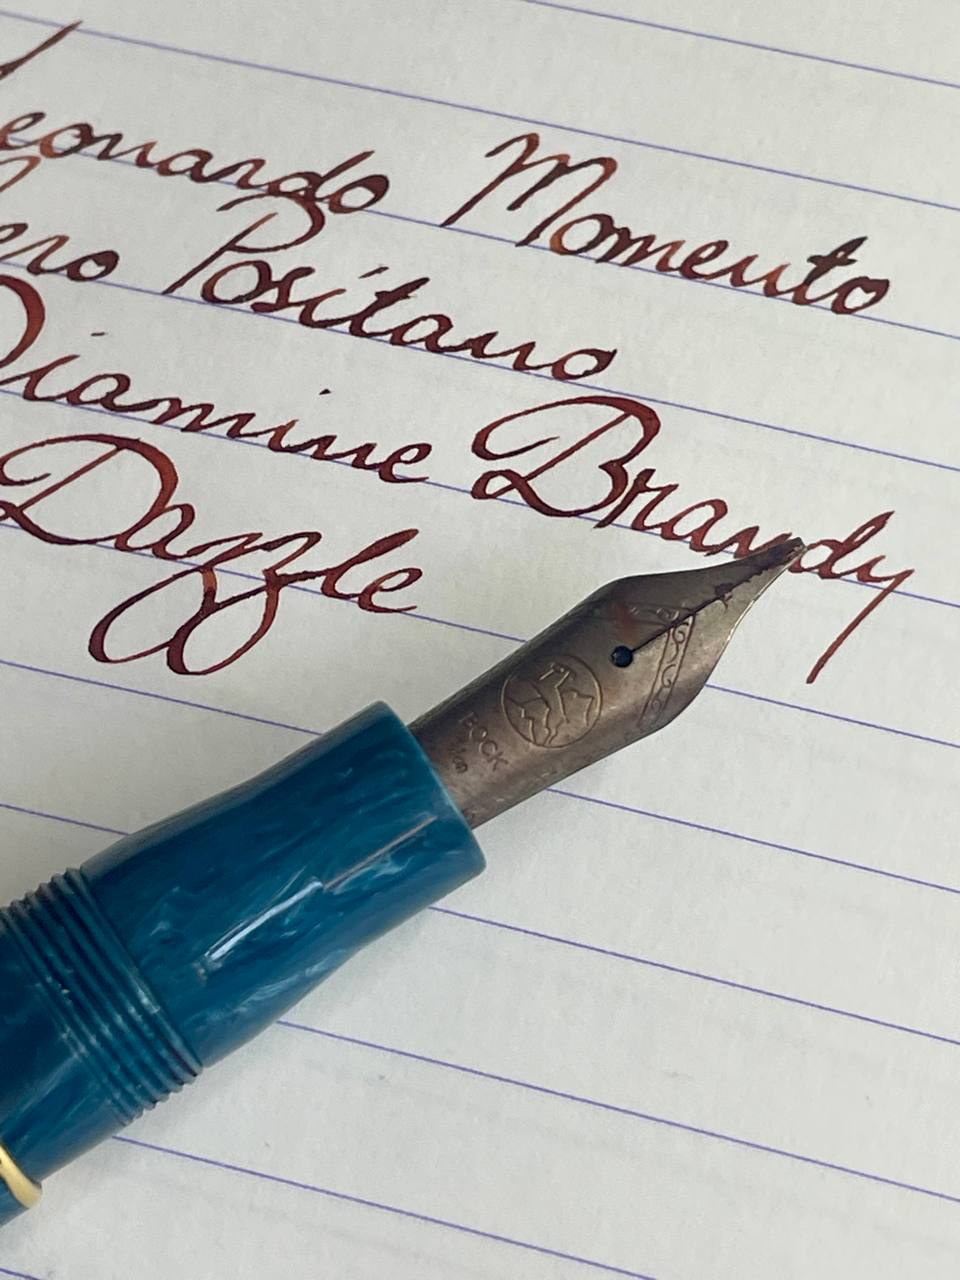 Leonardo Momento
Zero Positano
Diamine Brandy
Dazzle
BOCK